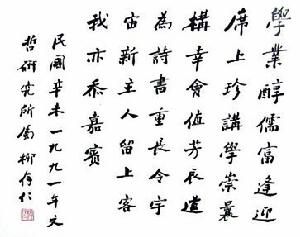 學業醇儒富逢迎
席上珍講學崇曩
構幸會值芳辰道
為詩書重長令宇
宙新主人留上客
我亦忝嘉賓
民國辛未一九九一年文
哲研究所屬柳存仁